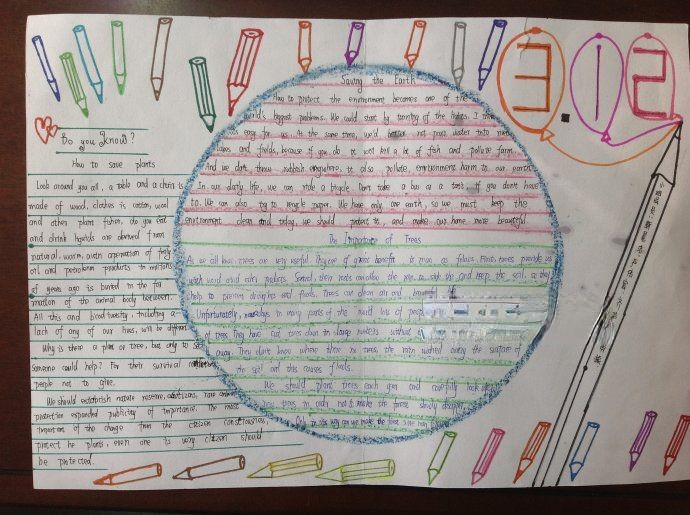 3.12
Do you know?
How to save plants
Look around you all, a table and a chair is
made of wood, clothes is cotton, wool
and other plant fishon, do you eat
and drink are derived from
natural, warm, with operation of
oil and petroleum products to millions
of years ago is buried in the for
mation of the animal body between.
All this and biodiversity, including a
lack of any of our lives, will be different
Why is there a plant or tree, but only to
someone could help? For their survival
people not to give.
We should establish nature reserve,
protection expanded publicity of importance. The most
important of the change from the citizen consciousness,
protect the plants, even one is very citizen should
be protected.
Saving the Earth
How to protect the environment becomes one of the
world's biggest problems. We could start by turning off the lights. I think
it's easy for us. At the same time, we'd better not pour water into
lakes and fields, because if you do it will kill a lot of fish and pollute farm.
And we don't throw rubbish anywhere, it also pollute environment harm to our earth.
In our daily life, we can ride a bicycle. Don't take a bus or a taxi if you don't have
to. We can also try to recycle paper. We have only one earth, so we must keep the
environment clean and today, we should protect it, and make our home more beautiful.
The Importance of Trees
As we all know, trees are very useful. They are of great benefit to man as follows. First, trees provide us
with wood and other products. Second, their roots can the and keep the soil, so they
help to prevent droughts and floods. Trees can clean air and
Unfortunately, nowadays in many parts of the world lots of people
of trees. They have cut trees down in large numbers without
away. They don't know where there no trees, the rain washed away the surface of
the soil and this causes floods.
We should plant trees each year and carefully look after
trees in order not to make the forest slowly disappear.
Only in this way can we make the